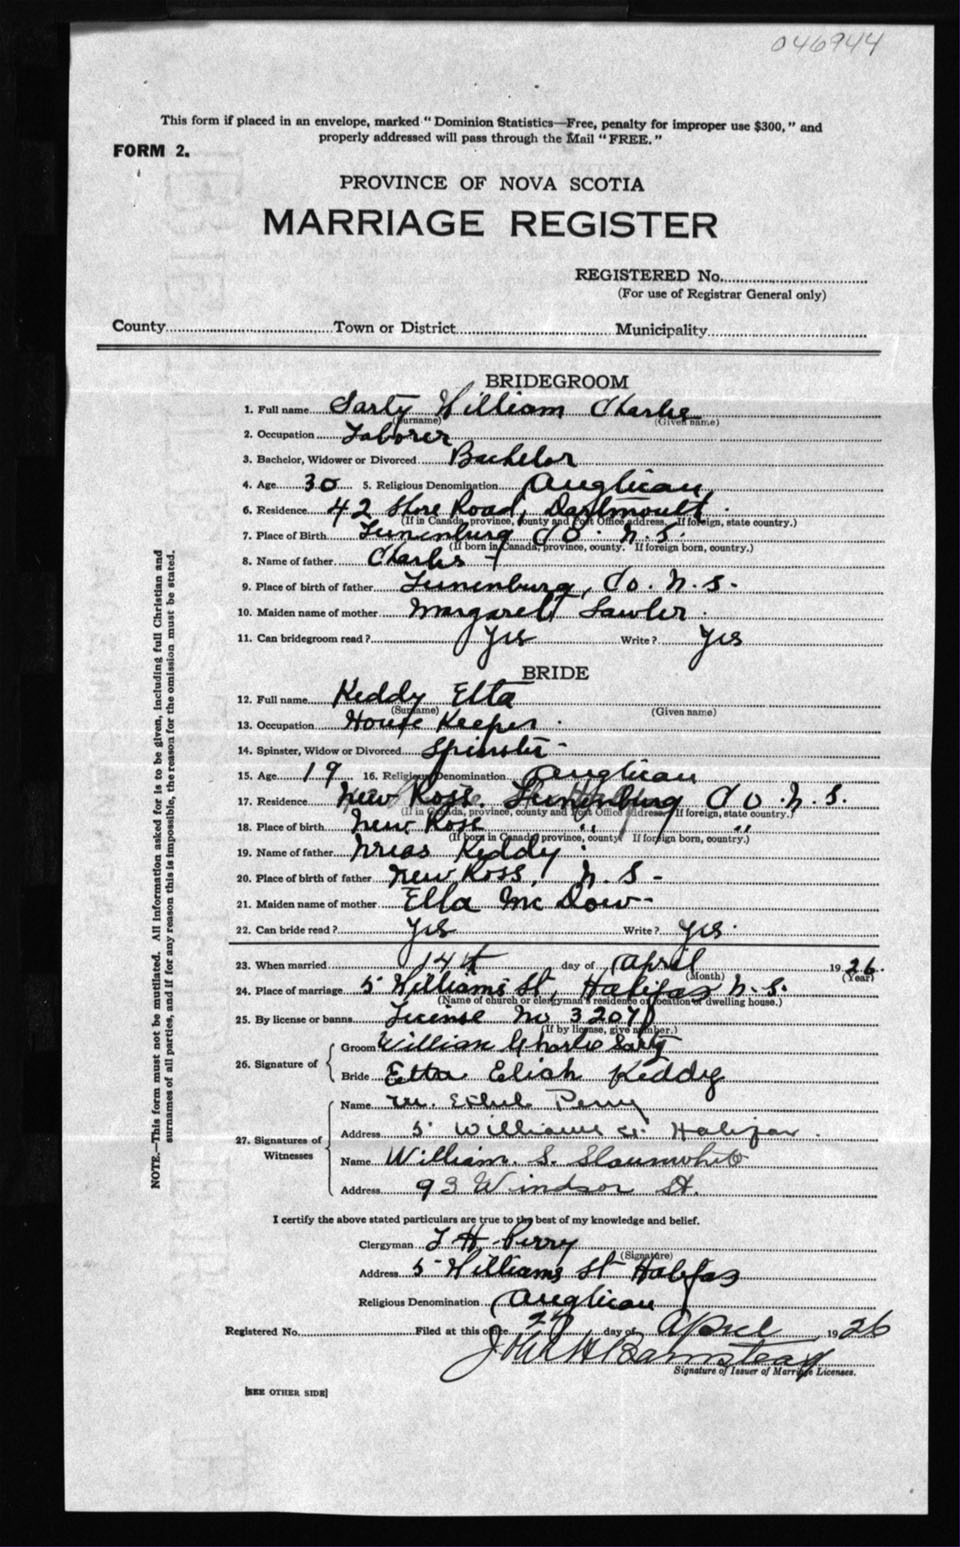 046944
This form if placed in an envelope, marked "Dominion Statistics—Free, penalty for improper use $300," and
properly addressed will pass through the Mail "FREE."
FORM 2.
PROVINCE OF NOVA SCOTIA
MARRIAGE REGISTER
REGISTERED No.
(For use of Registrar General only)
County Town or District Municipality
NOTE.—This form must not be mutilated. All information asked for is to be given, including full Christian and
surnames of all parties, and if for any reason this is impossible, the reason for the omission must be stated.
BRIDEGROOM
1. Full name Sarty William Charlie
(Surname) (Given name)
2. Occupation Laborer
3. Bachelor, Widower or Divorced Bachelor
4. Age 30 5. Religious Denomination Anglican
6. Residence 42 Shore Road, Dartmouth
(If in Canada, province, county and Post Office address. If foreign, state country.)
7. Place of Birth Lunenburg Co. N.S.
(If born in Canada, province, county. If foreign born, country.)
8. Name of father Charles
9. Place of birth of father Lunenburg, Co. N.S.
10. Maiden name of mother Margaret Lawler
11. Can bridegroom read? Yes Write? Yes
BRIDE
12. Full name Keddy Etta
(Surname) (Given name)
13. Occupation House Keeper
14. Spinster, Widow or Divorced Spinster
15. Age 19 16. Religious Denomination Anglican
17. Residence New Ross. Lunenburg Co. N.S.
(If in Canada, province, county and Post Office address. If foreign, state country.)
18. Place of birth New Ross " "
(If born in Canada, province, county. If foreign born, country.)
19. Name of father Keddy
20. Place of birth of father New Ross, N.S.
21. Maiden name of mother Ella Mc Dow
22. Can bride read? Yes Write? Yes.
23. When married 14th day of April 1926.
(Month) (Year)
24. Place of marriage 5 Williams St, Halifax N.S.
(Name of church or clergyman's residence or location of dwelling house.)
25. By license or banns License No 3207
(If by license, give number.)
26. Signature of Groom William Charlie Sarty
Bride Etta Eliah Keddy
27. Signatures of Witnesses
Name M. Ethel Perry
Address 5 Williams St Halifax.
Name William. S. Slaunwhite
Address 93 Windsor St.
I certify the above stated particulars are true to the best of my knowledge and belief.
Clergyman T H Perry
(Signature)
Address 5 Williams St Halifax
Religious Denomination Anglican
Registered No. Filed at this office day of April 1926
John H Barnstead
Signature of Issuer of Marriage Licenses.
[SEE OTHER SIDE]